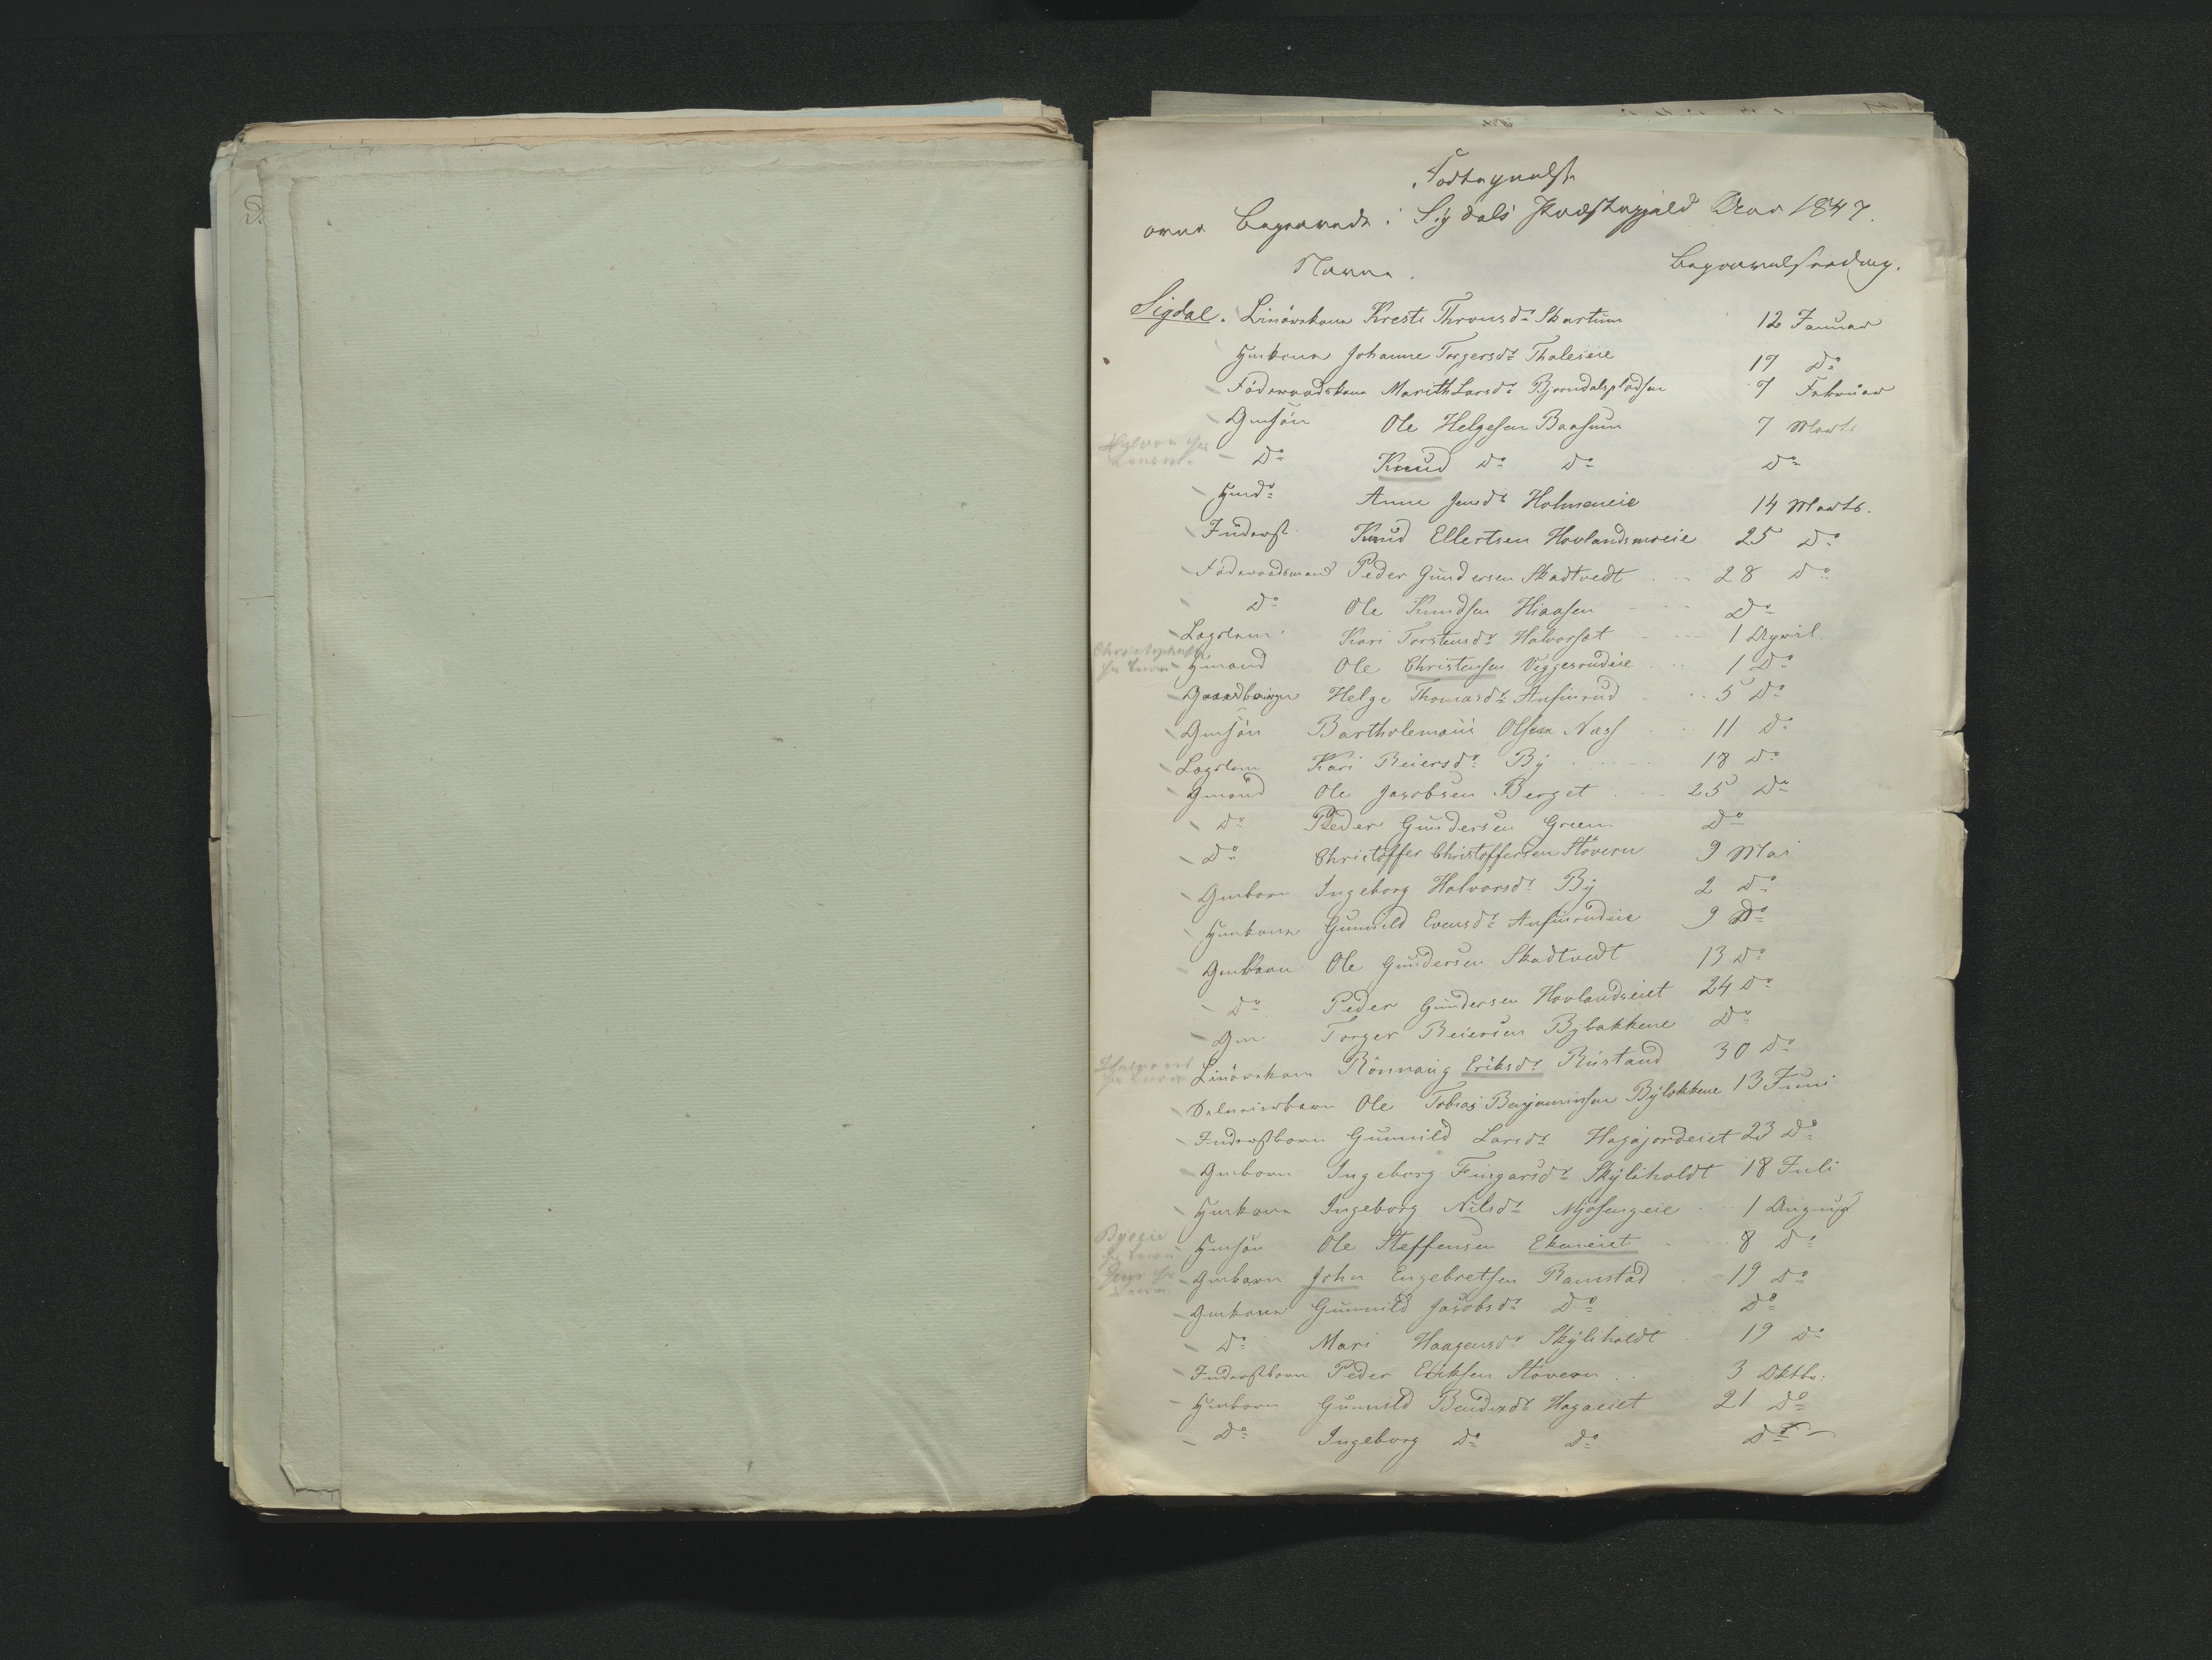 Fortegnelse
over Begravede i Sigdals Præstegjeld Aar 1847.
Navne.
Begravelsesdag.
Sigdal. Kreste Thronsdr Skartum 12 Januar
Hmkone Johanne Torgersdr Tholeseie 17 Do
Föderaadskone Marith Larsdr Bjorndalspladsen 7 Februar
Gmsön Ole Helgesen Baasum 7 Marts
Do Knud Do Do Do
Hmdr Anne Jensdr Holmeneie 14 Marts.
Inderst Knud Ellertsen Hovlandsmoeie 25 Do
Föderaadsmand Peder Gundersen Skadtvedt 28 Do
Do Ole Knudsen Hiaasen Do
Lægdlem Kari Torstensdr Halvorsæt 1 April
Christophers
Hmand Ole Christensen Veggesrudeie 1 Do
Helge Thomasdr Anfinrud 5 Do
Gmsön Bartholemæus Olsen Næss 11 Do
Lægdlem Kari Reiersdr By 18 Do
Gmand Ole Jacobsen Berget 25 Do
Do Peder Gundersen Green Do
Do Christoffer Christoffersen Stovern 9 Mai
Gmbarn Ingeborg Halvorsdr By 2 Do
Hmkone Gunnild Evensdr Anfinrudeie 9 Do
Gmbarn Ole Gundersen Skadtvedt 13 Do
Do Peder Gundersen Hovlandseiet 24 Do
Gm Torger Reiersen Bybakkene Do
Rönnaug Eriksdr Rustand 30 Do
Ole Tobias Benjaminsen Bybakkene 13 Juni
Inderstbarn Gunnild Larsdr Hagajordeiet 23 Do
Gmbarn Ingeborg Fingarsdr Skyliholdt 18 Juli
Hmkone Ingeborg Nilsdr Mjösengeie 1 August
Byeeie
Hmsön Ole Steffensen Ekereiet 8 Do
Gmbarn John Engebretsen Ramstad 19 Do
Gmkone Gunnild Jacobsdr Do Do
Do Mari Haagensdr Skyliholdt 19 Do
Inderstbarn Peder Eriksen Stovern 3 Oktbr:
Hmbarn Gunnild Bendixdr Hagaeiet 21 Do
Do Ingeborg Do Do Do